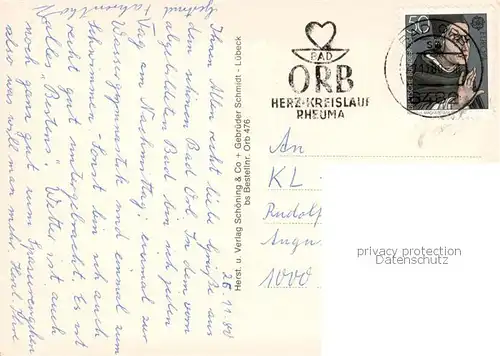 26.11.80
Ihnen Allen recht liebe Grüße aus
dem schönen Bad Orb. In dem vorn
abgebildeten Bad bin ich jeden
Tag am Nachmittag, einmal zur
Wassergymnastik und einmal zum
schwimmen. Sonst bin ich auch
recht gut untergebracht. Es ist
alles "Bestens". Wetter ist auch
noch ganz gut zum Spazierengehen
also was will man mehr. Herzl. Ihre
Herst. u. Verlag Schöning & Co + Gebrüder Schmidt · Lübeck
bs Bestellnr. Orb 476
BAD
ORB
HERZ-KREISLAUF
RHEUMA
50
An
KL
Rudolf
1000
privacy protection
Datenschutz